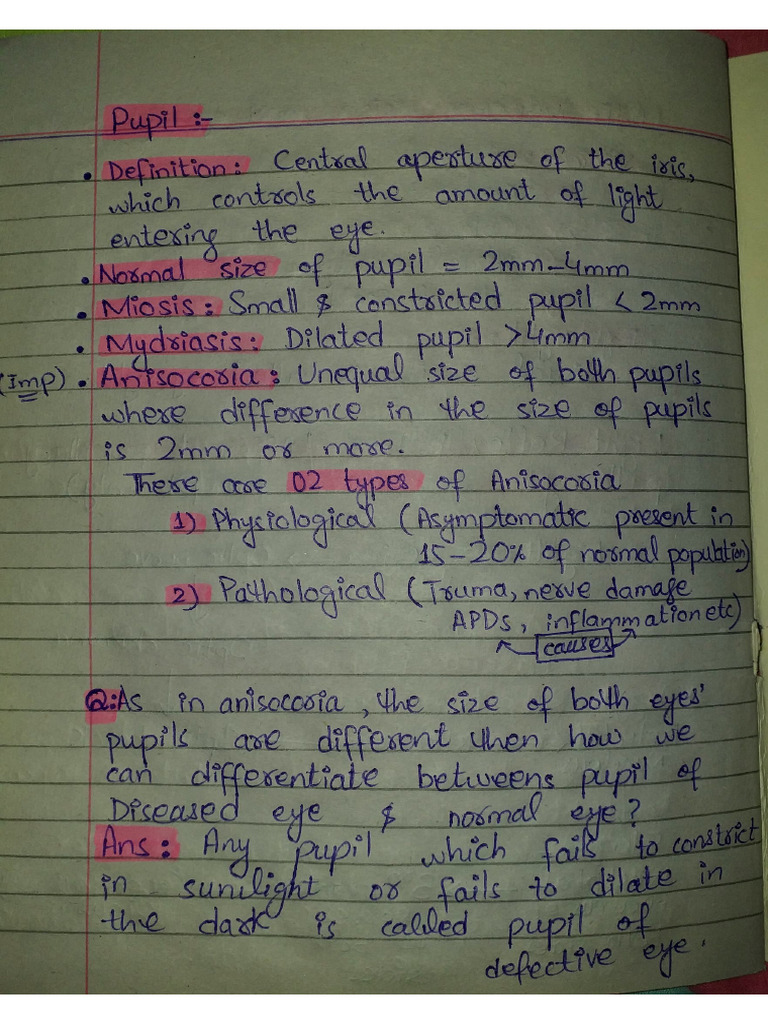 Pupil :-
• Definition: Central aperture of the iris,
which controls the amount of light
entering the eye.
• Normal size of pupil = 2mm-4mm
• Miosis: Small & constricted pupil < 2mm
• Mydriasis: Dilated pupil >4mm
(Imp) • Anisocoria: Unequal size of both pupils
where difference in the size of pupils
is 2mm or more.
There are 02 types of Anisocoria
1) Physiological (Asymptomatic present in
15-20% of normal population)
2) Pathological (Truma, nerve damage
APDs, inflammation etc)
causes
Q: As in anisocoria, the size of both eyes'
pupils are different then how we
can differentiate betweens pupil of
Diseased eye & normal eye?
Ans: Any pupil which fails to constrict
in sunlight or fails to dilate in
the dark is called pupil of
defective eye.